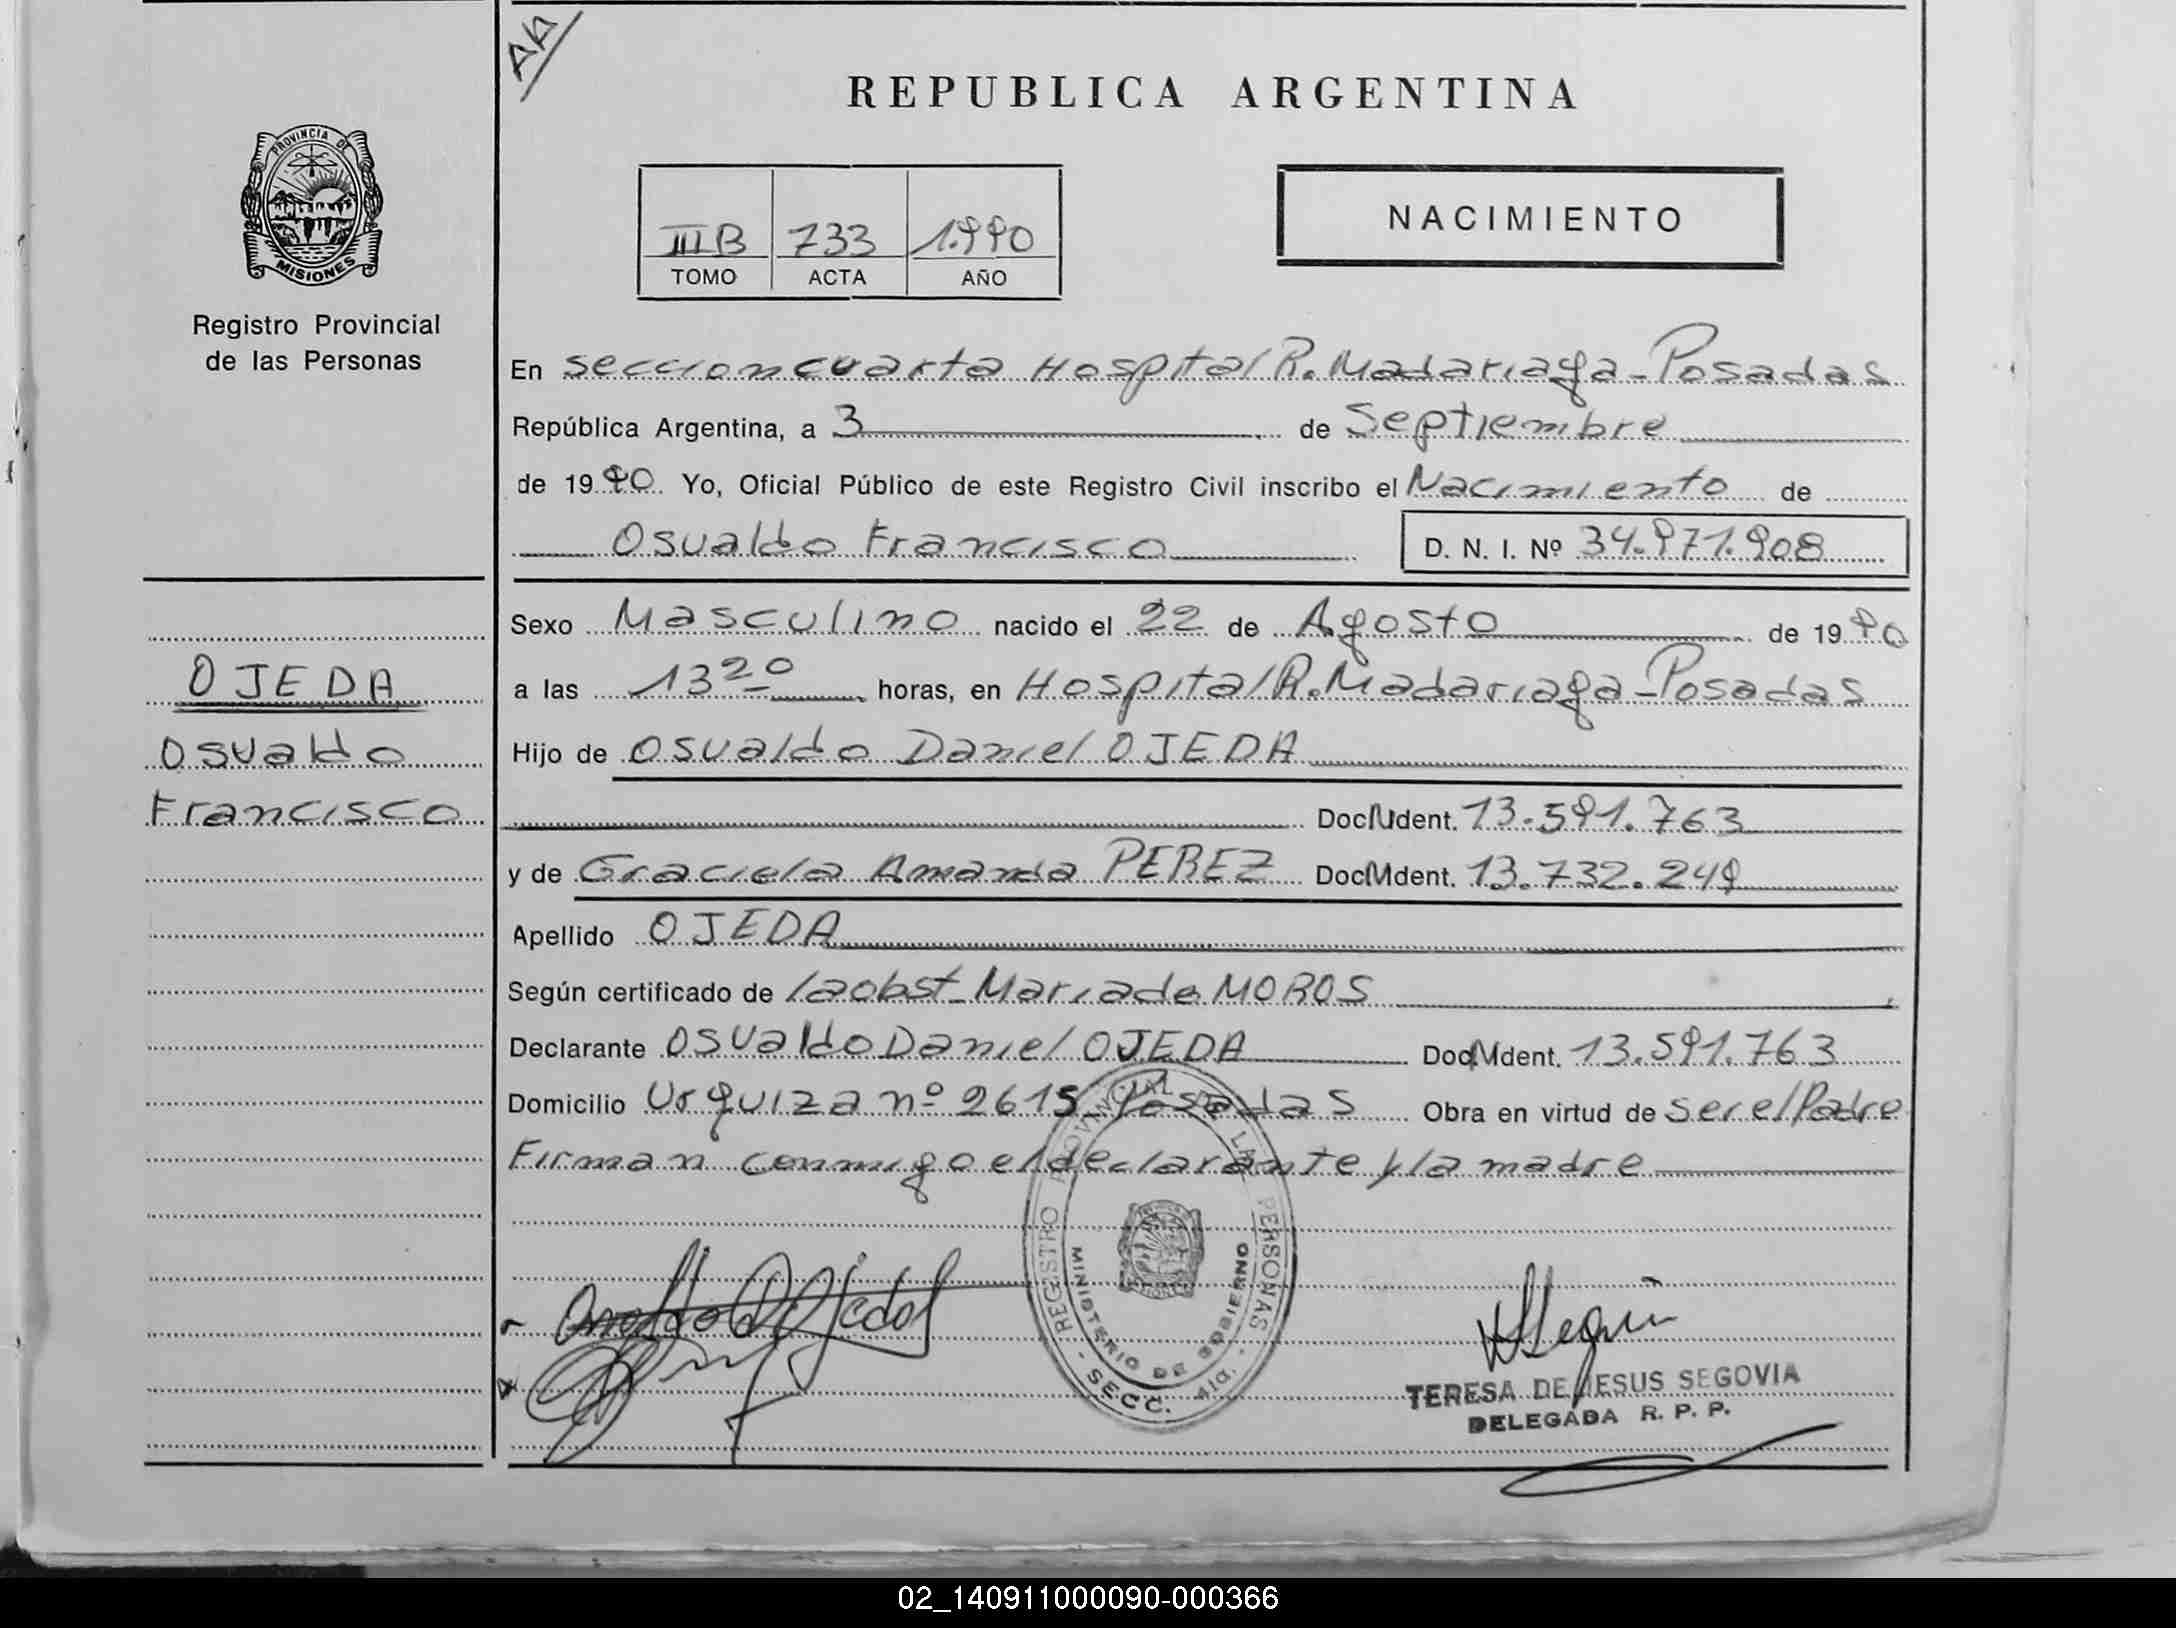 AA/
REPUBLICA ARGENTINA
PROVINCIA DE
MISIONES
Registro Provincial
de las Personas
III B 733 1.990
TOMO ACTA AÑO
NACIMIENTO
En seccion cuarta Hospital R. Madariaga - Posadas
República Argentina, a 3 de Septiembre
de 1990. Yo, Oficial Público de este Registro Civil inscribo el Nacimiento de
Osualdo Francisco D. N. I. Nº 34.971.908
Sexo Masculino nacido el 22 de Agosto de 1990
a las 13 20 horas, en Hospital R. Madariaga - Posadas
Hijo de Osualdo Daniel OJEDA
Doc. Ident. 13.591.763
y de Graciela Amanda PEREZ Doc. Ident. 13.732.249
Apellido OJEDA
Según certificado de la obst. Maria de MOROS
Declarante Osualdo Daniel OJEDA Doc. Ident. 13.591.763
Domicilio Urquiza nº 2615 Posadas Obra en virtud de ser el Padre
Firman conmigo el declarante y la madre
OJEDA
Osualdo
Francisco
REGISTRO PROVINCIAL DE LAS PERSONAS
MINISTERIO DE GOBIERNO
- SECC. 4ta. -
TERESA DE JESUS SEGOVIA
DELEGADA R. P. P.
02_140911000090-000366